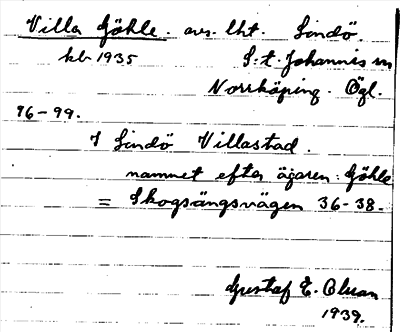 Villa Göhle. avs. lht. Lindö.
kb 1935 S:t. Johannis sn
Norrköping. Ögl.
76-99.
I Lindö Villastad.
namnet efter ägaren: Göhle
= Skogsängsvägen 36-38.
Gustaf E. Bluan
1939.